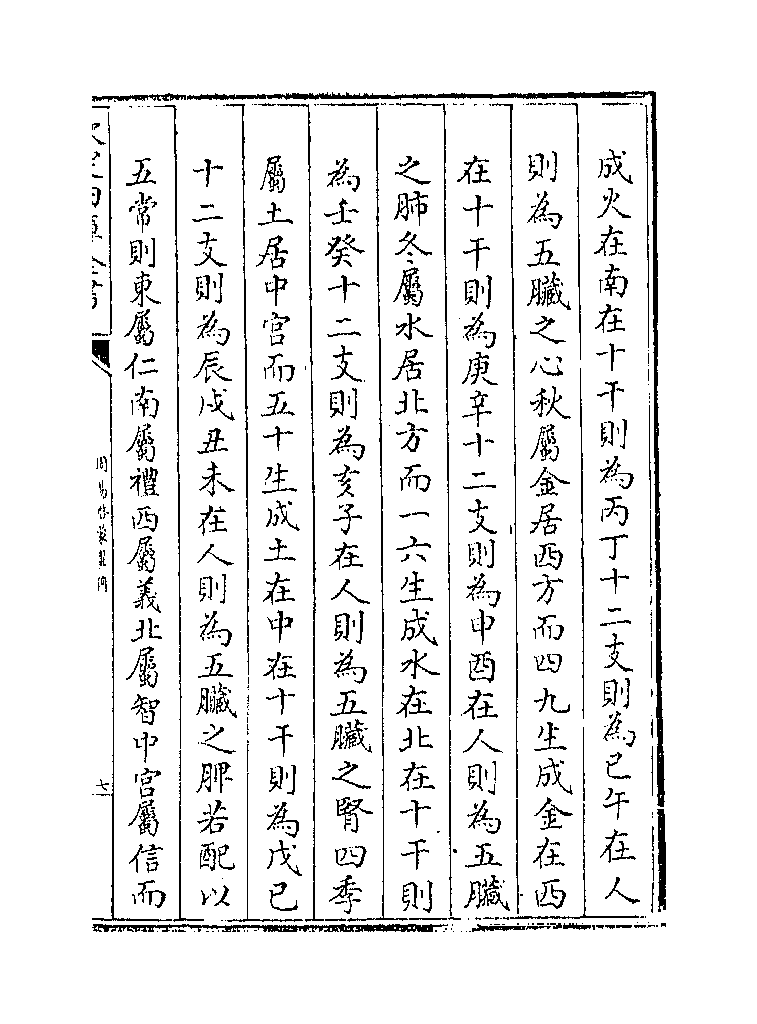 成火在南在十干則為丙丁十二支則為巳午在人
則為五臟之心秋屬金居西方而四九生成金在西
在十干則為庚辛十二支則為申酉在人則為五臟
之肺冬屬水居北方而一六生成水在北在十干則
為壬癸十二支則為亥子在人則為五臟之腎四季
屬土居中宮而五十生成土在中在十干則為戊己
十二支則為辰戌丑未在人則為五臟之脾若配以
五常則東屬仁南屬禮西屬義北屬智中宮屬信而
欽定四庫全書
周易啓蒙翼傳
七